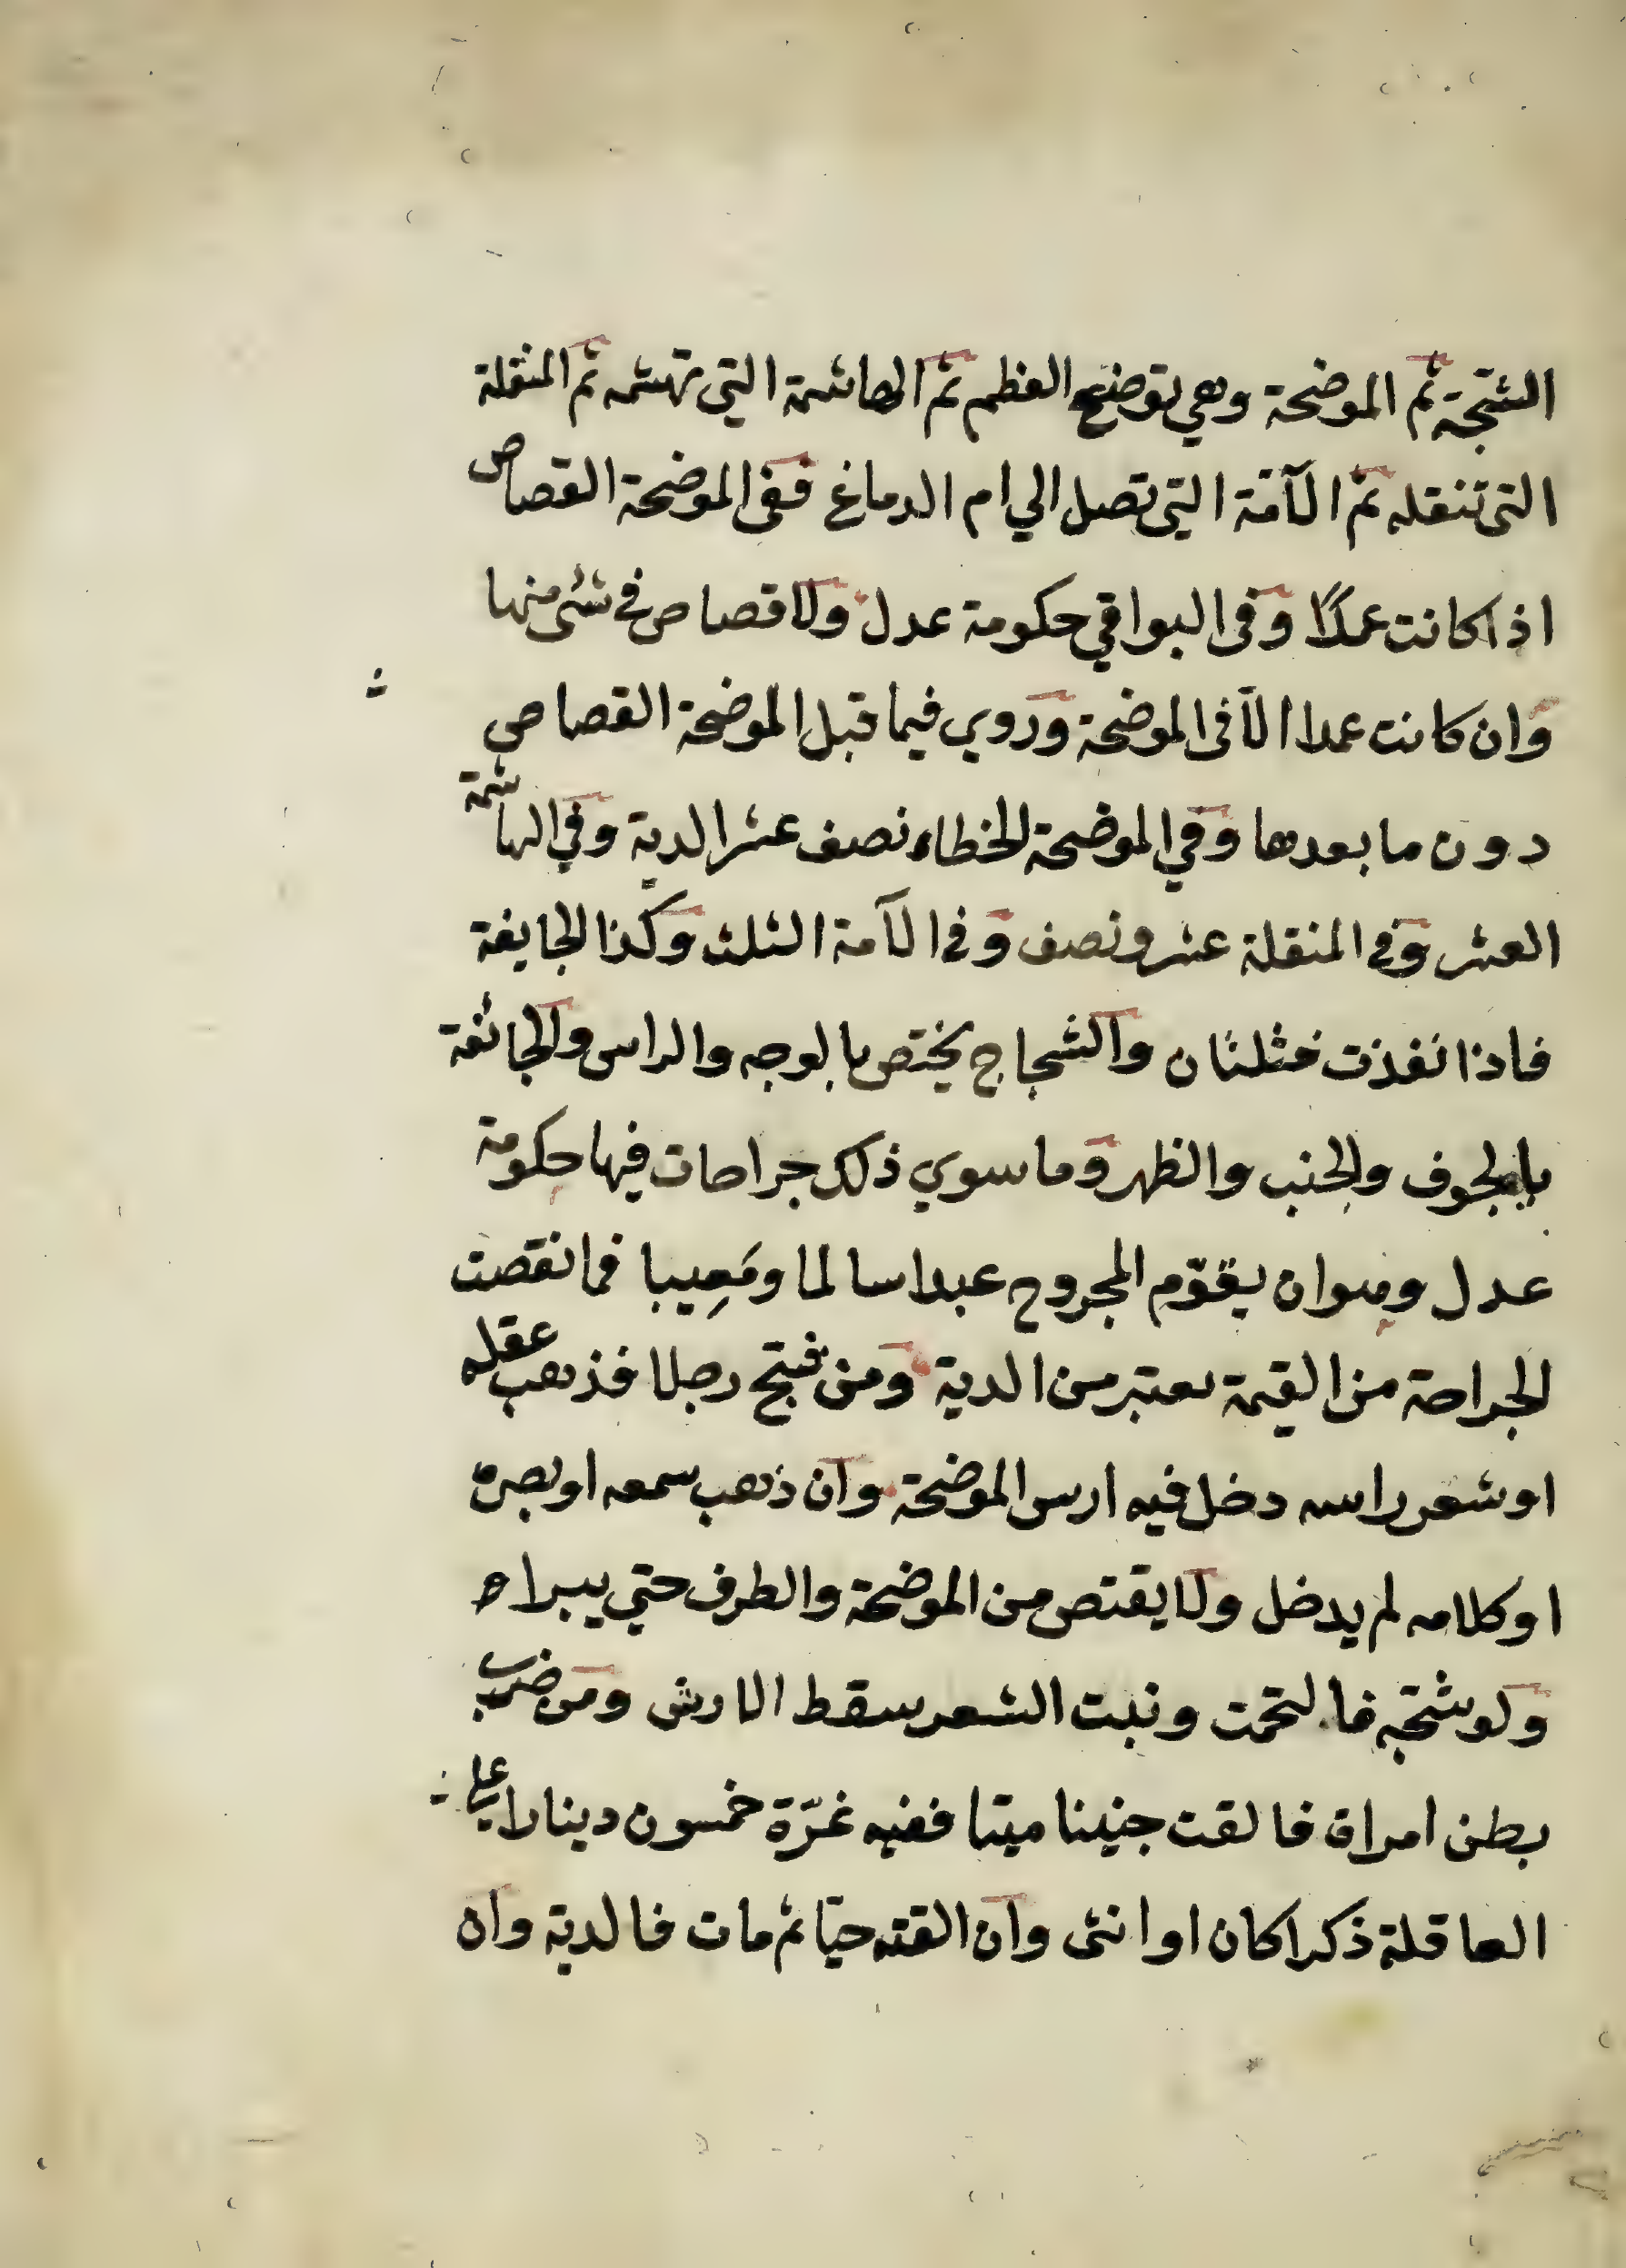 الشجّة ثم الموضحة وهي توضح العظم ثم الهاشمة التي تهشمه ثم المنقلة
التي تنقله ثم الآمّة التي تصل الي ام الدماغ ففى الموضحة القصاص
اذا كانت عمدًا وفى البواقي حكومة عدل ولا قصاص في شئ منها
وان كانت عمدا الّا فى الموضحة وروي فيما قبل الموضحة القصاص
دون ما بعدها وفي الموضحة الخطاء نصف عشر الدية وفي الهاشمة
العشر وفي المنقلة عشر ونصف وفى الآمة الثلث وكذا الجايفة
فاذا نفذت فثلثان والشجاج يختص بالوجه والراس والجائفة
بالجوف والجنب والظهر وما سوي ذلك جراحات فيها حكومة
عدل وهوان يقوّم المجروح عبدا سالما ومَعِيبا فما نقصت
الجراحة من القيمة يعتبر من الدية ومن شج رجلا فذهب عقله
او شعر راسه دخل فيه ارس الموضحة وان ذهب سمعه او بصره
او كلامه لم يدخل ولا يقتص من الموضحة والطرف حتي يبراه
ولو شجّه فالتحمت ونبت الشعر سقط الارش ومن ضرب
بطن امراة فالقت جنينا ميتا ففيه غرّة خمسون دينارا علي
العاقلة ذكرا كان او انثى وان القته حيّا ثم مات فالدية وان